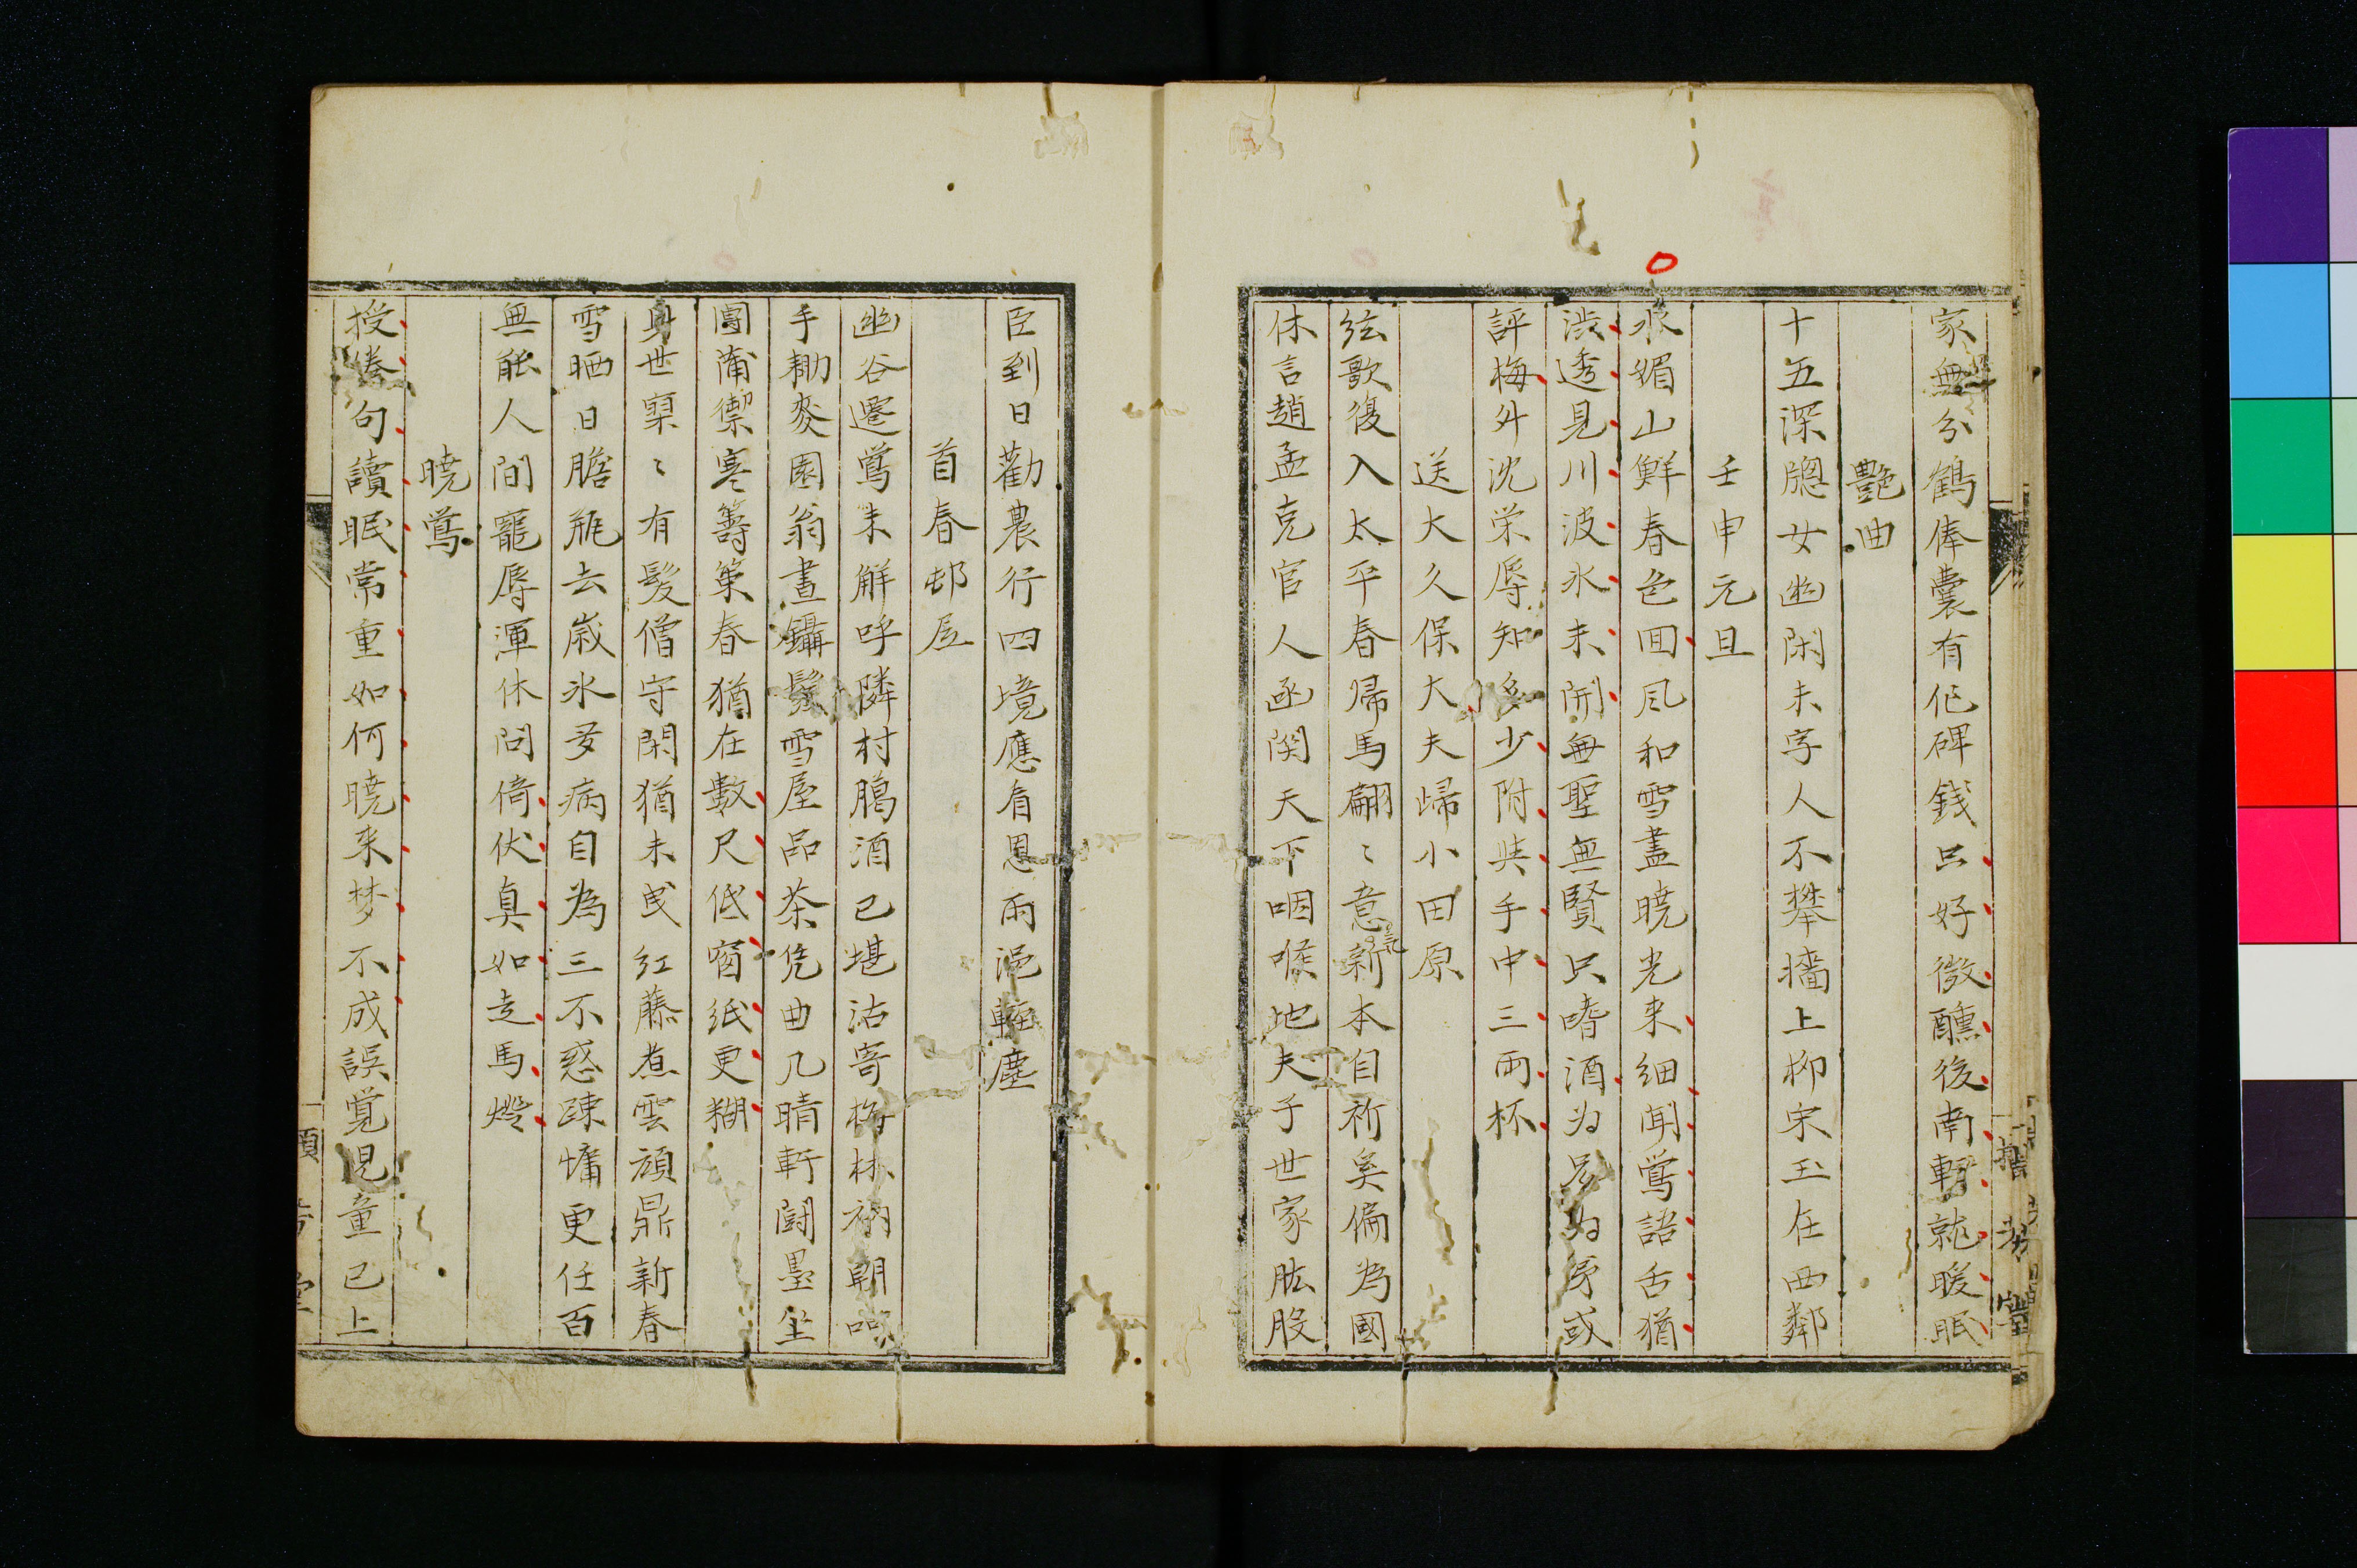 家無分鶴俸囊有佗碑錢只好微醺後南軒就暖眠
艷曲
十五深窻女幽閑未字人不攀墻上柳宋玉在西鄰
壬申元旦
水媚山鮮春色回風和雪盡曉光來細聞鶯語舌猶
澁透見川波氷未開無聖無賢只嗜酒为兄为弟或
評梅升沈栄辱知多少附與手中三兩杯
送大久保大夫歸小田原
弦歌復入太平春帰馬翩〻意氣新本自祈奚偏為國
休言趙孟克官人函関天下咽喉地夫子世家肱股
臣到日勸農行四境應看恩雨浥輕塵
首春邨居
幽谷遷鶯未解呼隣村臈酒已堪沽寄梅林衲朝
手耡麥園翁晝鑷鬚雪屋品茶凭曲几晴軒闘墨坐
團蒲禦寒籌策春猶在數尺低窗紙更糊
身世槩〻有髮僧守閑猶未曳紅藤煮雲頑鼎新春
雪晒日膽瓶去歳氷多病自為三不惑疎慵更任百
無能人間寵辱渾休問倚伏真如走馬燈
曉鶯
授餘句讀眠常重如何曉来梦不成誤覚児童已上